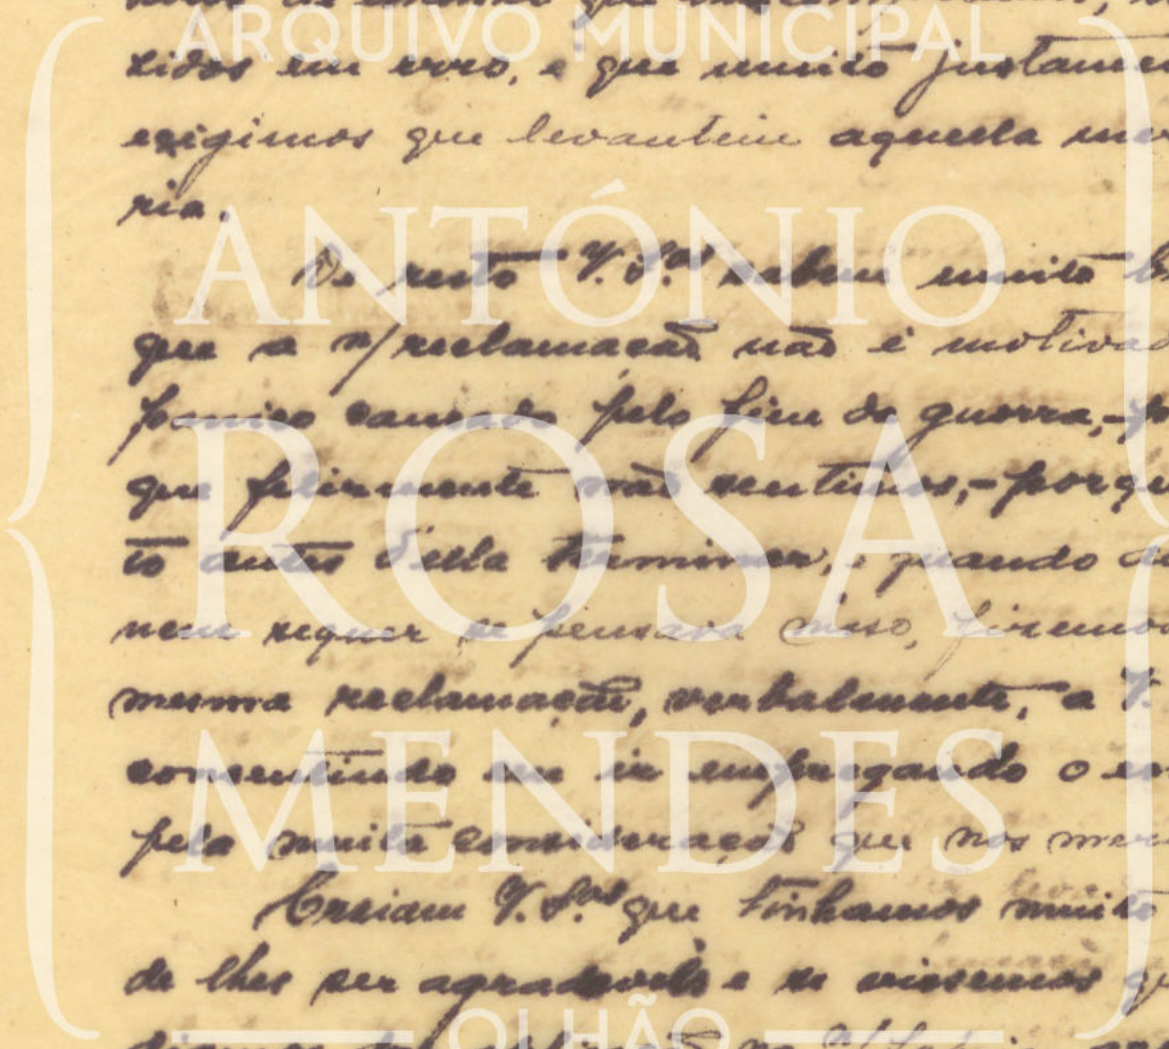 ARQUIVO MUNICIPAL
zidos em erro, e que muito justamen
exigimos que levantem aquella mer
ria.
ANTÓNIO
De resto V. S.as sabem muito b
que a n/ reclamação não é motivad
panico causado pelo fim da guerra,-p
que felizmente não sentimos,-porqu
to antes d'ella terminar, e quando a
ROSA
nem sequer se pensava n'isso, fizemos
mesma reclamação, verbalmente, a V.
MENDES
consentindo em ir empregando o
pela muita consideração que nos mer
Creiam V. S.as que tinhamos muito
de lhes ser agradaveis e se vissemos q
OLHÃO